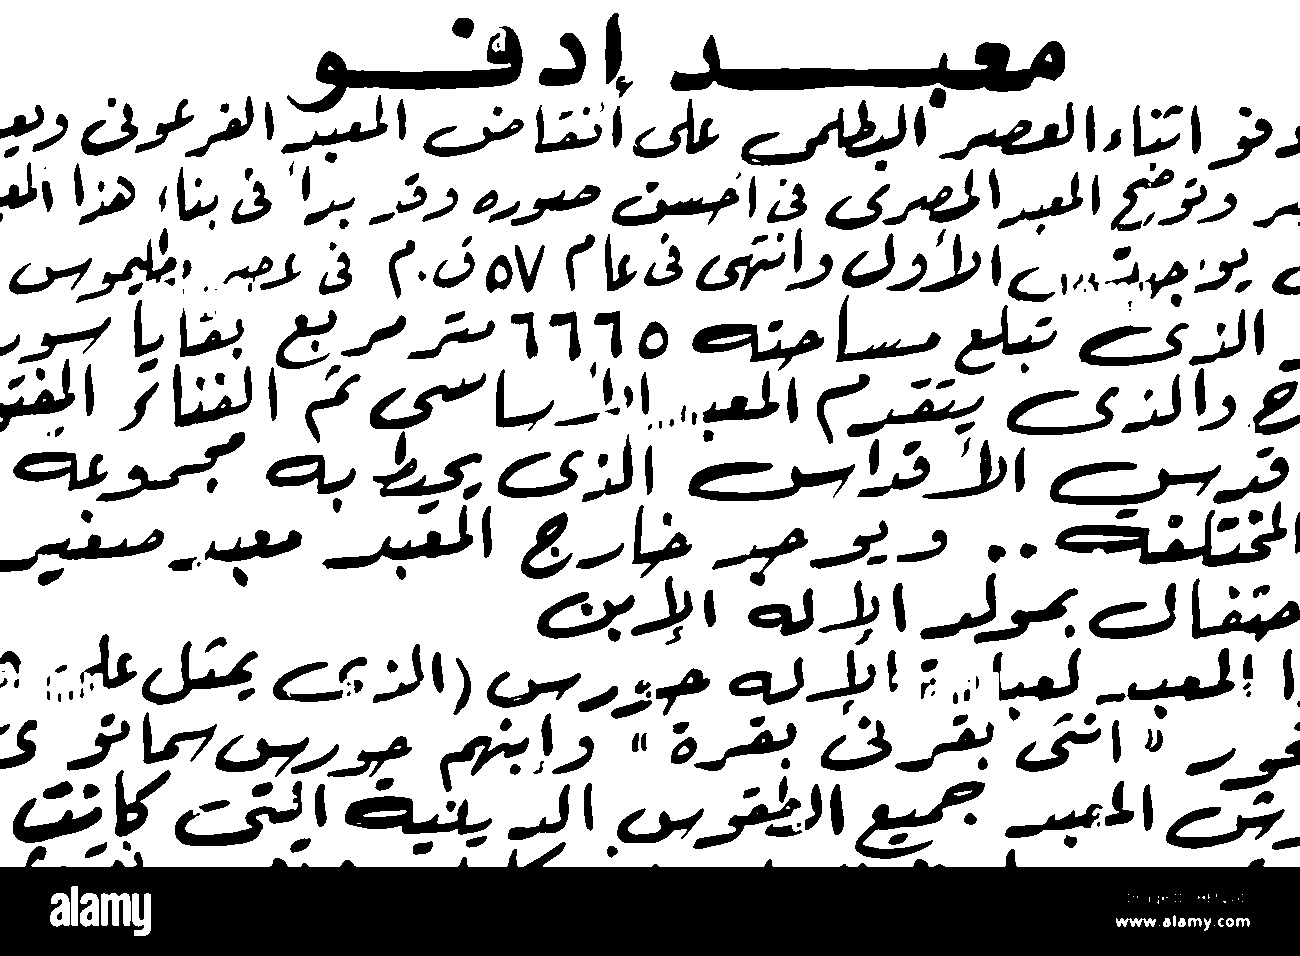 معبد إدفو
دفو اثناء العصر البطلمى على أنقاض المعبد الفرعونى ويع
ـر وتوضح المعبد المصرى فى أحسن صوره وقد بدأ فى بناء هذا المعـ
الأول وانتهى فى عام ٥٧ ق.م فى عصر بطليموس
الذى تبلغ مساحته ٦٦٦٥ متر مربع بقايا سور
ج والذى يتقدم المعبد الأساسى ثم الفناء المفتو
قدس الأقداس الذى يحيط به مجموعة
المختلفة .. ويوجد خارج المعبد معبد صغير
حتفال بمولد الإله الإبن
ا المعبد لعبادة الإله حورس (الذى يمثل على
ـحور « انثى بقرنى بقرة » وإبنهم حورس سماتوى
المعبد جميع الطقوس الدينية التى كانت
alamy
www.alamy.com